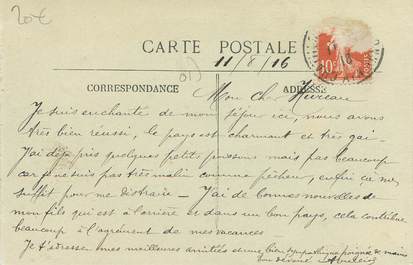 20€
CARTE POSTALE
11/8/16
10c
01)
CORRESPONDANCE
ADRESSE
Mon cher
Je suis enchanté de mon séjour ici, nous avons
très bien réussi, le pays est charmant et très gai -
J'ai déjà pris quelques petits poissons mais pas beaucoup
car je ne suis pas très malin comme pêcheur, enfin ça me
suffit pour me distraire - J'ai de bonnes nouvelles de
mon fils qui est à l'arrière et dans un bon pays, cela contribue
beaucoup à l'agrément de mes vacances
Je t'adresse mes meilleures amitiés et une bien sympathique poignée de mains